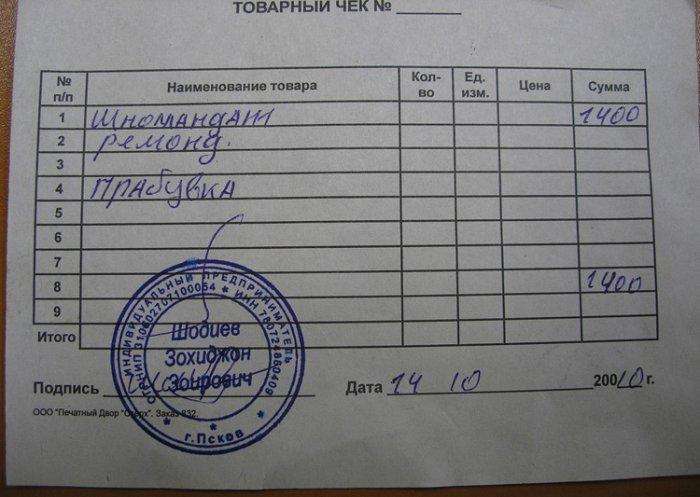 ТОВАРНЫЙ ЧЕК №
№ п/п Наименование товара Кол-во Ед. изм. Цена Сумма
1 Шномандаж 1400
2 ремонд.
3
4 прабувка
5
6
7
8 1400
9
Итого
ИНДИВИДУАЛЬНЫЙ ПРЕДПРИНИМАТЕЛЬ
ОГРНИП 310602702100054 * ИНН 780724860409
Шодиев
Зохиджон
Зоирович
* г.Псков *
Подпись Дата 14 10 2010 г.
ООО "Печатный Двор "Стерх". Заказ 832.